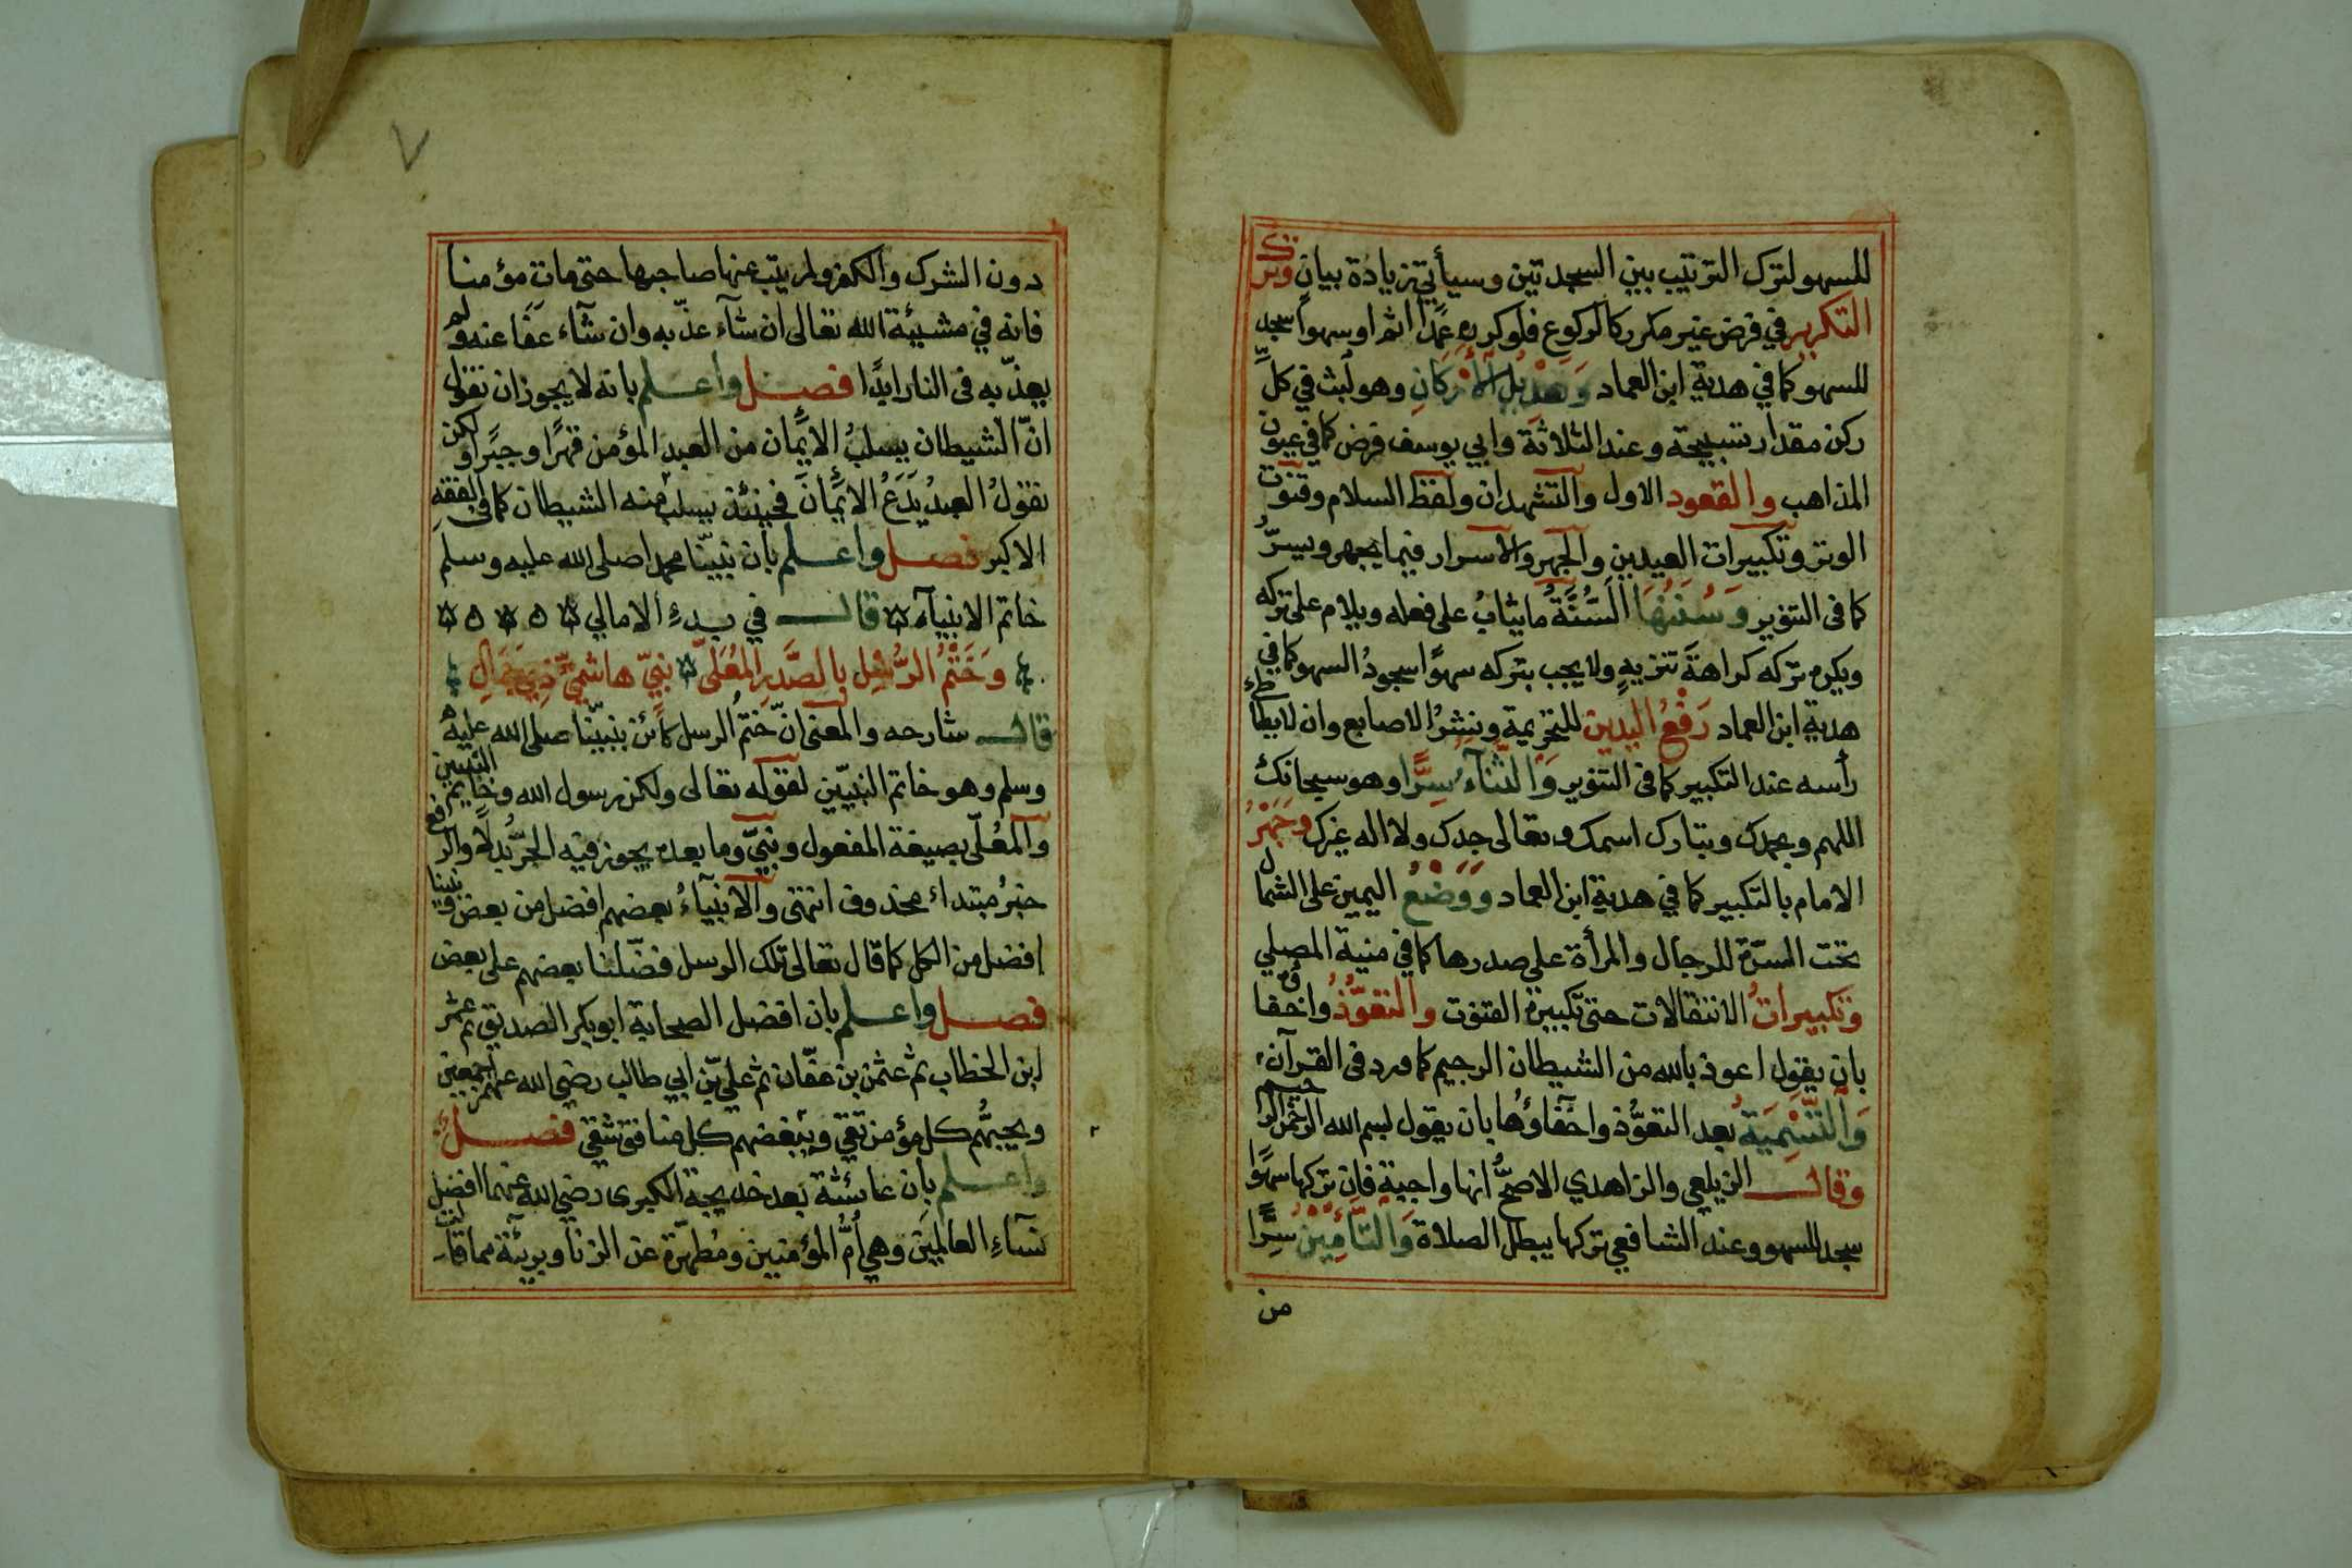 للسهو لترك الترتيب بين السجدتين وسيأتي زيادة بيان وترك
التكرير في فرض غير مكرر كالركوع فلو كرره عمدا اثم او سهوا سجد
للسهو كما في هدية ابن العماد وتعديل الأركان وهو لبث في كل
ركن مقدار تسبيحة وعند الثلاثة وابي يوسف فرض كما في عيون
المذاهب والقعود الاول والتشهدان ولفظ السلام وقنوت
الوتر وتكبيرات العيدين والجهر والاسرار فيما يجهر ويسرّ
كما فى التنوير وَسُنَنُهَا السُّنَّةُ ما يثابُ على فعله ويلام على تركه
ويكره تركه كراهةَ تنزيهٍ ولا يجب بتركه سهوًا سجودُ السهو كما في
هدية ابن العماد رَفْعُ اليدين للتحريمة ونشرُ الاصابع وان لا يطأطئ
رأسه عند التكبير كما فى التنوير وَالثَّنَآءُ سِرًّا وهو سبحانك
اللهم وبحمدك وتبارك اسمك وتعالى جدك ولا اله غيرك وَجَهْرُ
الامام بالتكبير كما في هدية ابن العماد وَوَضْعُ اليمين على الشمال
تحت السرّة للرجال والمرأة على صدرها كما في منية المصلي
وتكبيراتُ الانتقالات حتى تكبيرة القنوت والتعوُّذُ واخفاؤه
بان يقول اعوذ بالله من الشيطان الرجيم كما ورد فى القرآن
وَالتَّسْمِيَةُ بعد التعوّذ واخفاؤها بان يقول بسم الله الرحمن الرحيم
وقال الزيلعي والزاهدي الاصحُّ انها واجبة فان تركها سهوًا
سجد للسهو وعند الشافعي تركها يبطل الصلاة وَالتَّأْمِيْنُ سِرًّا
من
٧
دون الشرك والكفر ولم يتب عنها صاحبها حتى مات مؤمنا
فانه في مشيئة الله تعالى ان شآء عذّبه وان شآء عَفَا عنه ولم
يعذّبه فى النار ابدًا فصل واعلم بانه لا يجوز ان نقول
انّ الشيطان يسلبُ الايمان من العبد المؤمن قهرًا وجبرًا ولكن
نقولُ العبدُ يَدَعُ الايمانَ فحينئذ يسلبه منه الشيطان كما فى الفقه
الاكبر فصل واعلم بان نبيّنا محمدا صلى الله عليه وسلم
خاتم الانبيآء قال في بدءِ الامالي
وَخَتْمُ الرُّسْلِ بالصَّدرِ المُعَلّى نبيّ هاشميّ ذي جَمَالِ
قال شارحه والمعنى انّ ختمُ الرسل كائن بنبيّنا صلى الله عليه
وسلم وهو خاتم النبيّين لقوله تعالى ولكن رسول الله وخاتم النبيين
والمُعلّى بصيغة المفعول ونبيّ وما بعده يجوز فيه الجرُّ بدلًا والرفع
خبرُ مبتداء محذوف انتهى والانبيآءُ بعضهم افضل من بعض ونبينا
افضل من الكل كما قال تعالى تلك الرسل فضّلنا بعضهم على بعض
فصل واعلم بان افضل الصحابة ابو بكر الصديق ثم عمر
ابن الخطاب ثم عثمن بن عفّان ثم علي بن ابي طالب رضي الله عنهم اجمعين
ويحبُّهم كل مؤمن تقي ويبغضهم كل منافق شقي فصل
واعلم بان عائشة بعد خديجة الكبرى رضي الله عنهما افضل
نسآءِ العالمين وهي أُمُّ المؤمنين ومُطهّرة عن الزنا وبريئة مما قالت